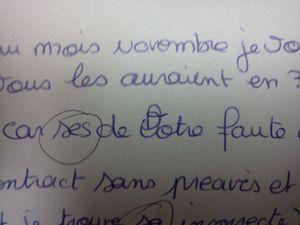 au mois novembre je vo
vous les auraient en ?
car ses de Votre faute
ontract sans preavis et
et je trouve sa incorrecte